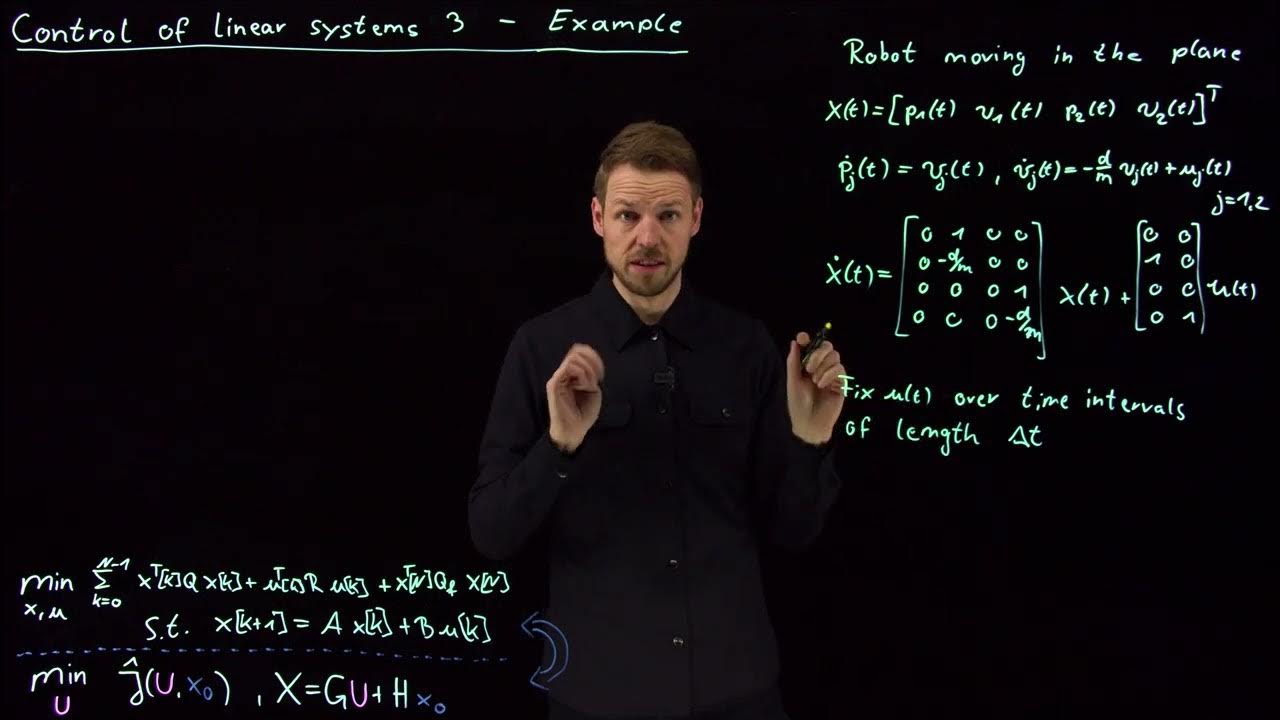 Control of linear systems 3 - Example
Robot moving in the plane
x(t) = [p1(t) v1(t) p2(t) v2(t)]^T
ṗj(t) = vj(t), v̇j(t) = -d/m vj(t) + uj(t)
j=1,2
ẋ(t) = [0 1 0 0; 0 -d/m 0 0; 0 0 0 1; 0 0 0 -d/m] x(t) + [0 0; 1 0; 0 0; 0 1] u(t)
Fix u(t) over time intervals
of length Δt
min x,u Σ k=0 N-1 x^T[k]Q x[k] + u^T[k]R u[k] + x^T[N]Qf x[N]
s.t. x[k+1] = A x[k] + B u[k]
min U Ĵ(U, x0), X = GU + H x0